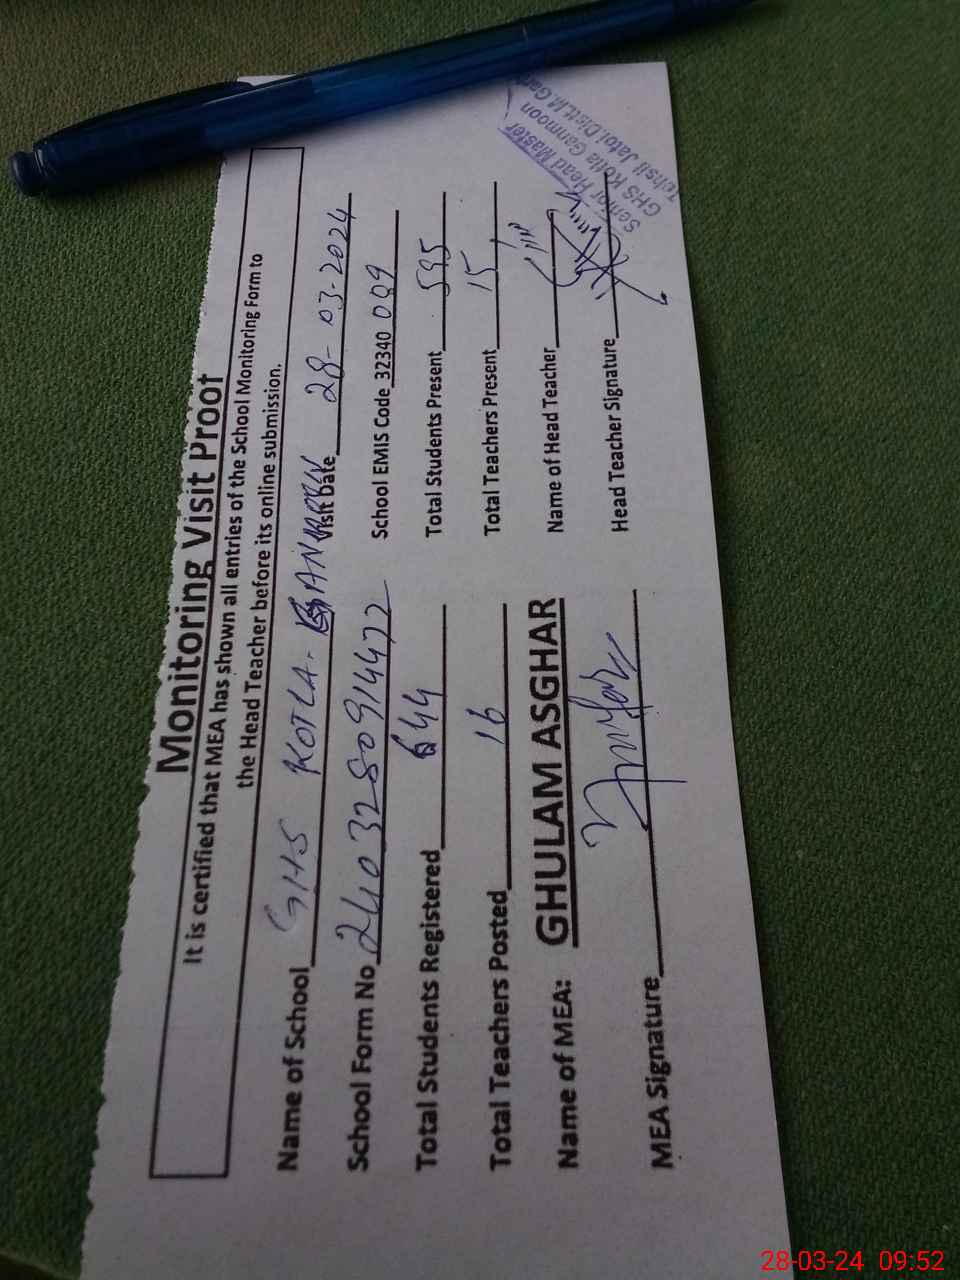 Monitoring Visit Proof
It is certified that MEA has shown all entries of the School Monitoring Form to
the Head Teacher before its online submission.
Name of School GHS KOTLA-GANMOON Visit Date 28-03-2024
School Form No 2403280914472 School EMIS Code 32340 089
Total Students Registered 644 Total Students Present 595
Total Teachers Posted 16 Total Teachers Present 15
Name of MEA: GHULAM ASGHAR Name of Head Teacher
MEA Signature Head Teacher Signature
Senior Head Master
GHS Kotla Ganmoon
Tehsil Jatoi.Distt.M.Gar
28-03-24 09:52